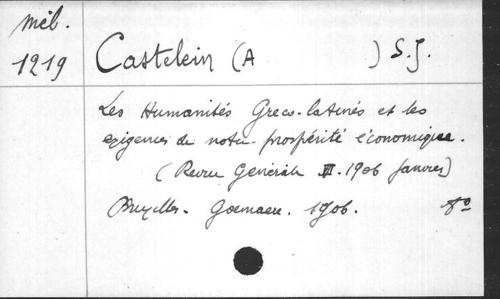 mél.
1219
Castelein (A ) S.J.
Les Humanités Greco-latines et les
exigences de notre prospérité économique.
(Revue Générale 1906 Janvier)
Bruxelles. Goemaere. 1906. 8º